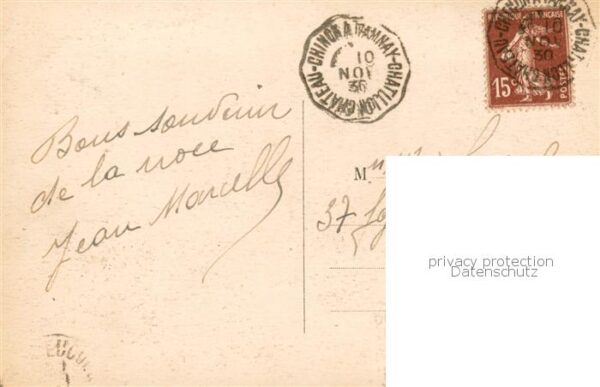 CHATEAU-CHINON A TAMNAY-CHATILLON
10
NOV
30
REPUBLIQUE FRANCAISE
15c
POSTES
Bons souvenir
de la noce
Jean Marcelle
M
37
privacy protection
Datenschutz